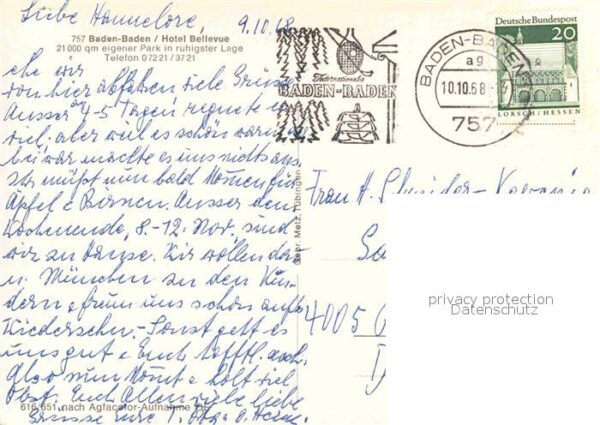 Liebe Hannelore, 9.10.68
757 Baden-Baden / Hotel Bellevue
21 000 qm eigener Park in ruhigster Lage
Telefon 0 72 21 / 37 21
ehe wir
von hier abfahren viele Grüsse
Ausser 4-5 Tagen regnete es
viel, aber weil es schön warm
bei war machte es uns nichts aus.
Ihr müßt nun bald kommen für
Äpfel & Birnen. Ausser dem
Wochenende, 8-12. Nov. sind
wir zu Hause. Wir wollen dann
n. München zu den Kin-
dern & freuen uns schon aufs
Wiedersehn. - Sonst geht es
uns gut & Euch hofftl. auch.
Also nun kommt & holt viel
Obst. Euch Allen viele liebe
Grüsse Eure
616/651 nach Agfacolor-Aufnahme
Gebr. Metz, Tübingen
Internationales
BADEN-BADEN
BADEN-BADEN
ag
10.10.68
757
Deutsche Bundespost
20
LORSCH / HESSEN
Frau H.
4005
privacy protection
Datenschutz